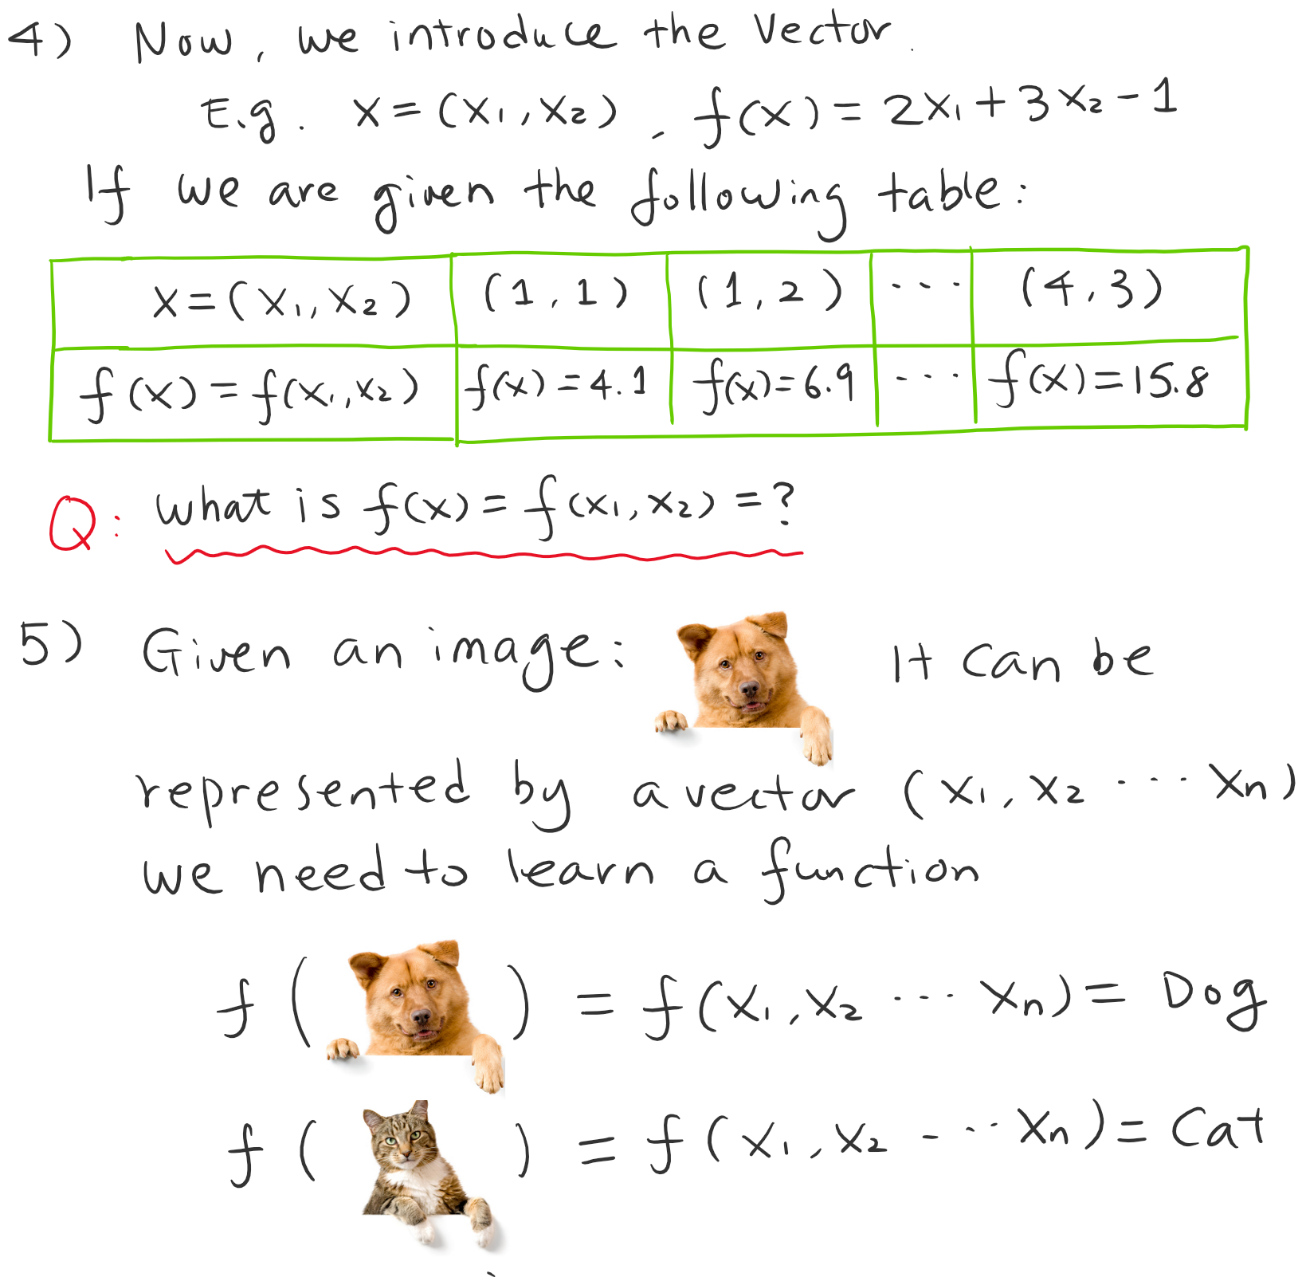 4) Now, we introduce the Vector.
E.g. x = (x₁, x₂), f(x) = 2x₁ + 3x₂ - 1
If we are given the following table:
x = (x₁, x₂) (1, 1) (1, 2) ... (4, 3)
f(x) = f(x₁, x₂) f(x) = 4.1 f(x) = 6.9 ... f(x) = 15.8
Q: What is f(x) = f(x₁, x₂) = ?
5) Given an image: It can be
represented by a vector (x₁, x₂ ... xₙ)
we need to learn a function
f ( ) = f(x₁, x₂ ... xₙ) = Dog
f ( ) = f(x₁, x₂ ... xₙ) = Cat